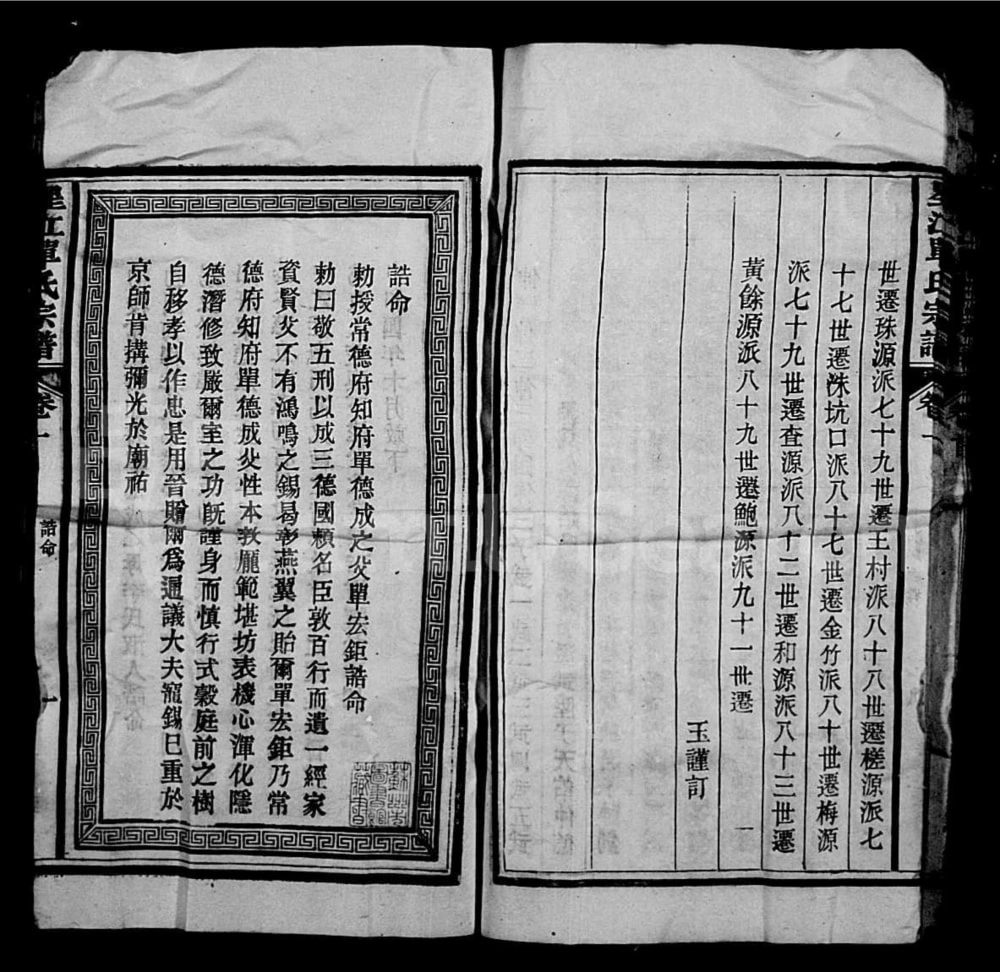 世遷珠源派七十九世遷王村派八十八世遷槎源派七
十七世遷洙坑口派八十七世遷金竹派八十世遷梅源
派七十九世遷查源派八十二世遷和源派八十三世遷
黃餘源派八十九世遷鮑源派九十一世遷
玉謹訂
誥命
勅授常德府知府單德成之父單宏鉅誥命
勅曰敬五刑以成三德國賴名臣敦百行而遺一經家
資賢父不有鴻鳴之錫曷彰燕翼之貽爾單宏鉅乃常
德府知府單德成父性本敦龐範堪坊表機心渾化隱
德潛修致嚴爾室之功旣謹身而慎行式穀庭前之樹
自移孝以作忠是用晉贈爾爲通議大夫寵錫巳重於
京師肯搆彌光於廟祐
星江單氏宗譜
卷一
誥命
一